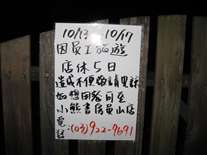 10/13 10/17
因員工旅遊
店休5日
造成不便敬請見諒
如想回務可至
小熊書房員山店
電話:(03)922-9691